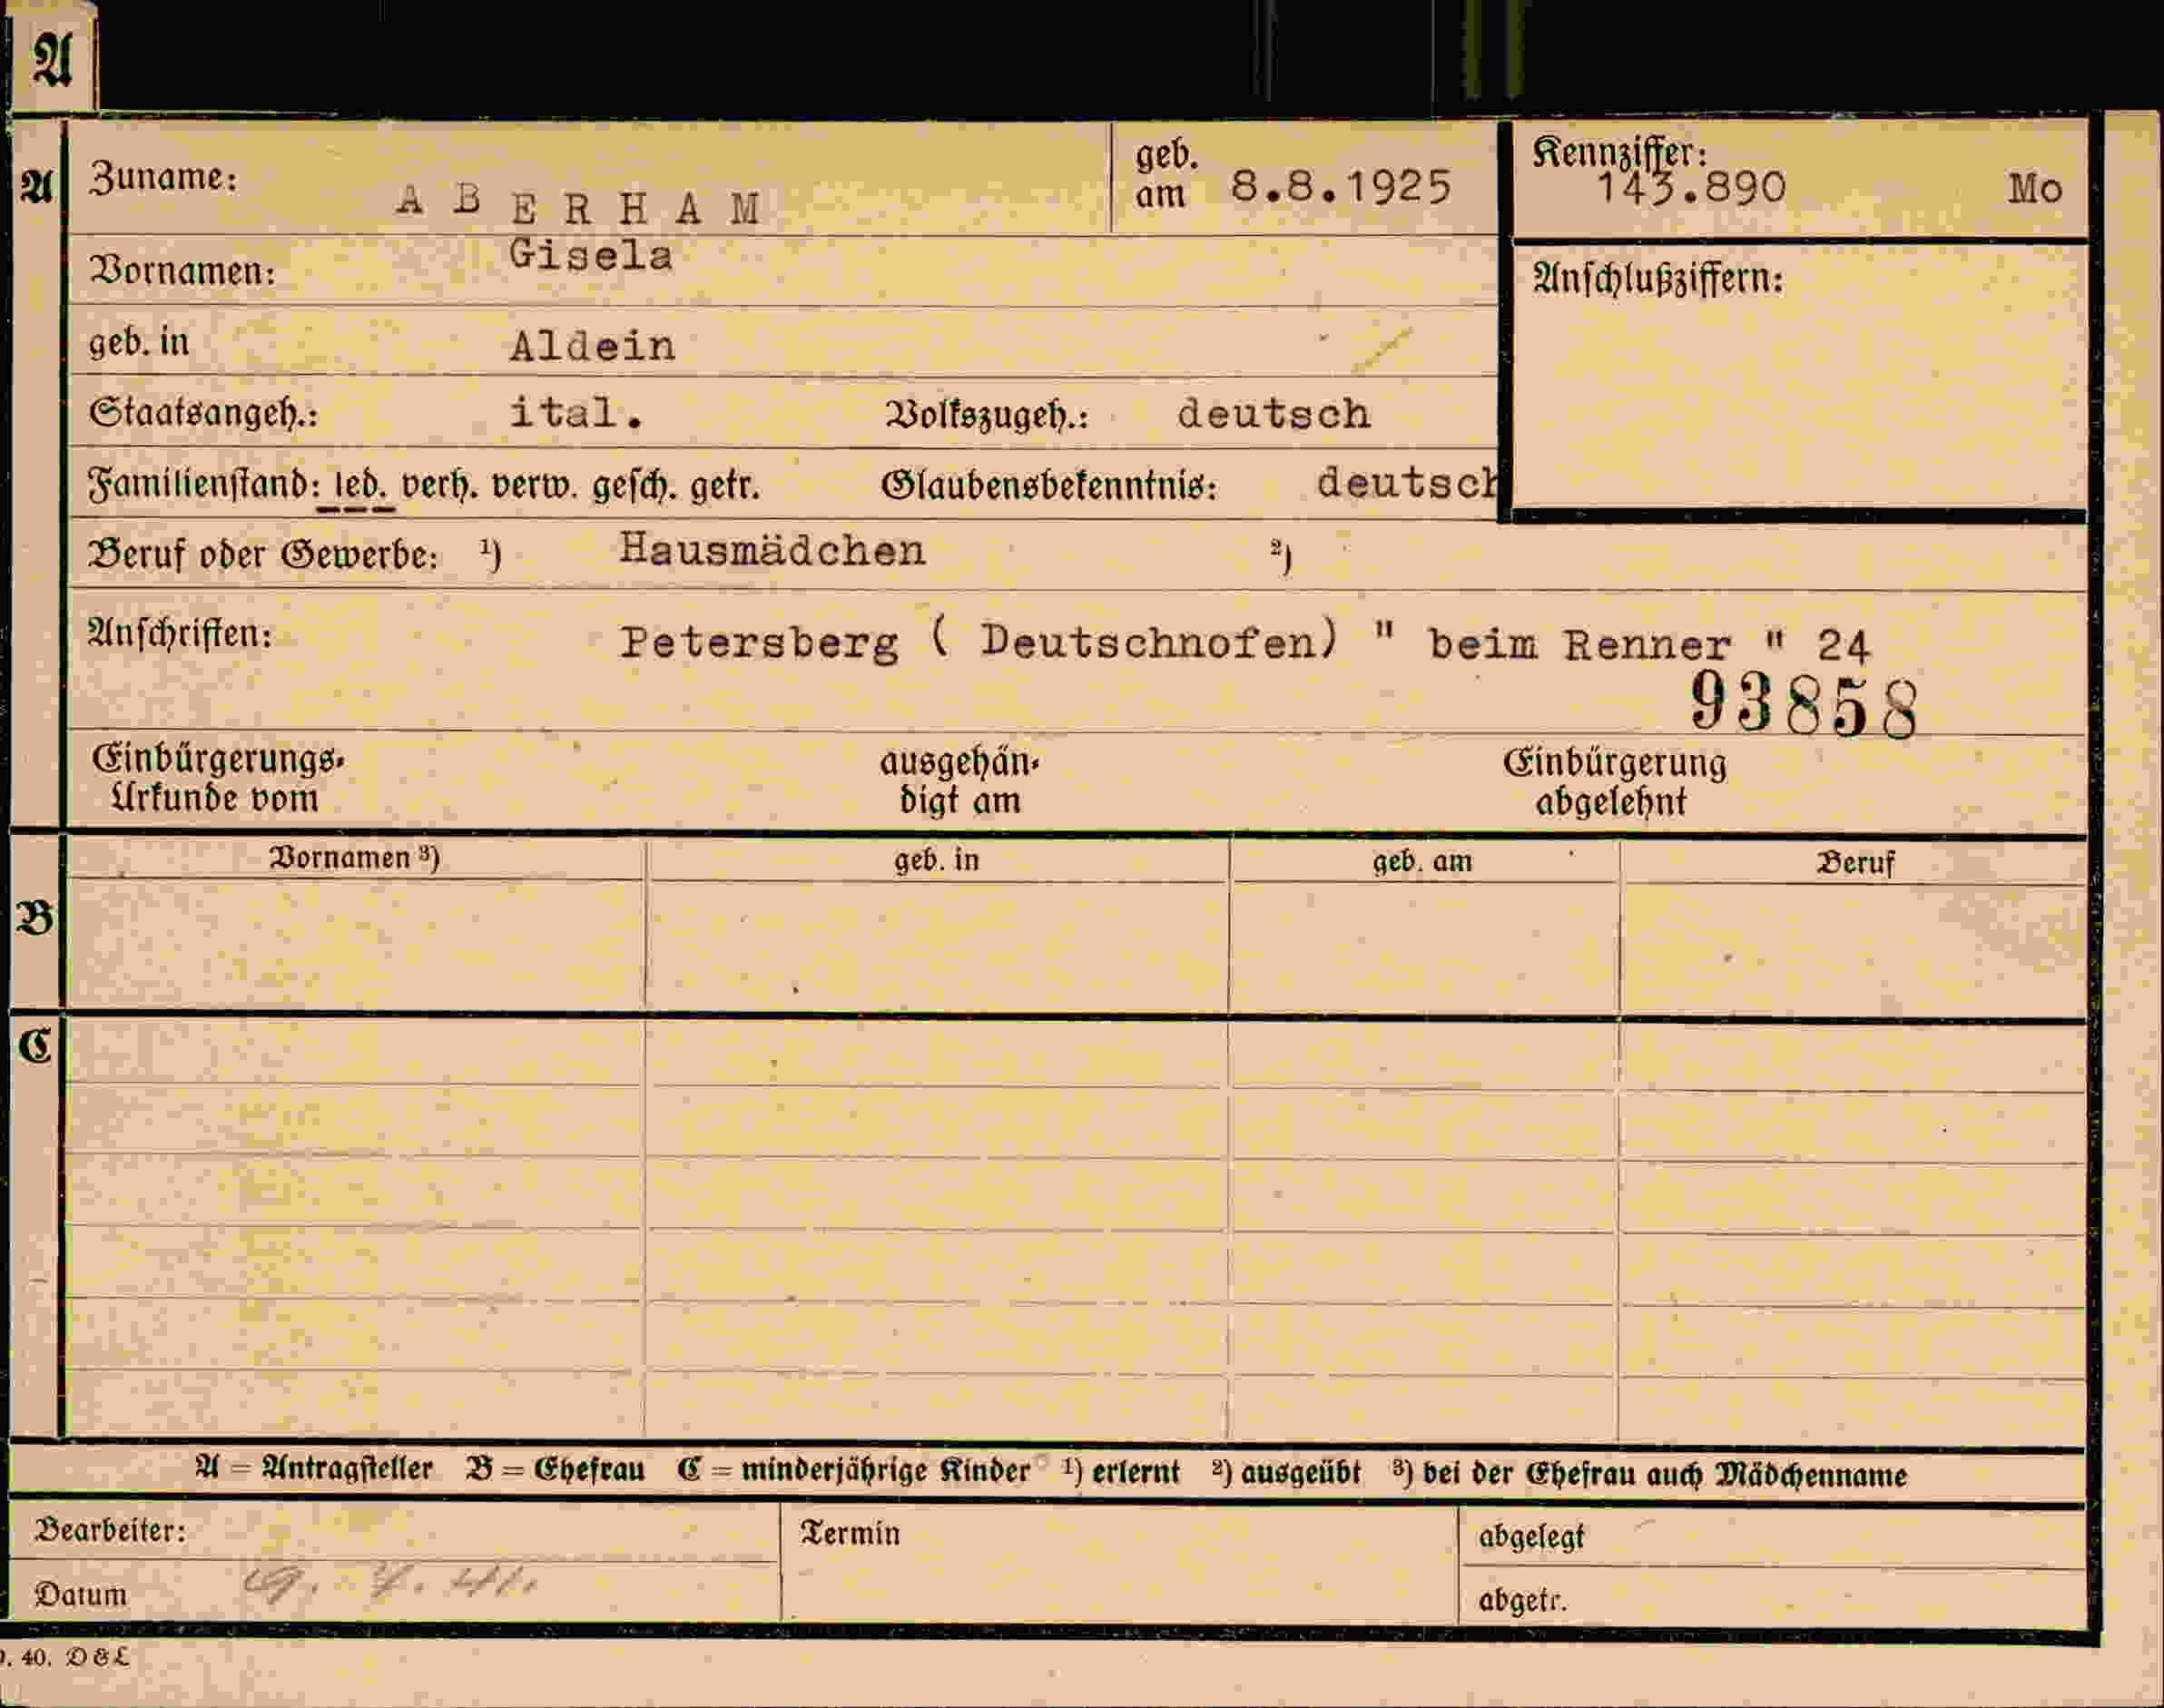 A
A Zuname: ABERHAM geb. am 8.8.1925 Kennziffer: 143.890 Mo
Vornamen: Gisela Anschlußziffern:
geb. in Aldein
Staatsangeh.: ital. Volkszugeh.: deutsch
Familienstand: led. verh. verw. gesch. getr. Glaubensbekenntnis: deutsch
Beruf oder Gewerbe: ¹) Hausmädchen ²)
Anschriften: Petersberg ( Deutschnofen) " beim Renner " 24
93858
Einbürgerungs- ausgehän- Einbürgerung
Urkunde vom digt am abgelehnt
Vornamen ³) geb. in geb. am Beruf
B
C
A = Antragsteller B = Ehefrau C = minderjährige Kinder ¹) erlernt ²) ausgeübt ³) bei der Ehefrau auch Mädchenname
Bearbeiter: Termin abgelegt
Datum abgetr.
. 40. D & L